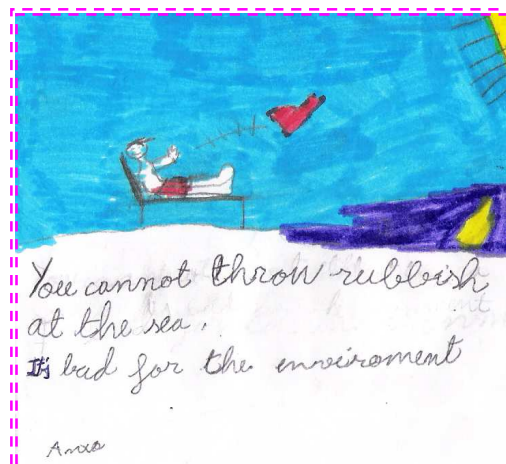 You cannot throw rubbish
at the sea.
It's bad for the enveiroment